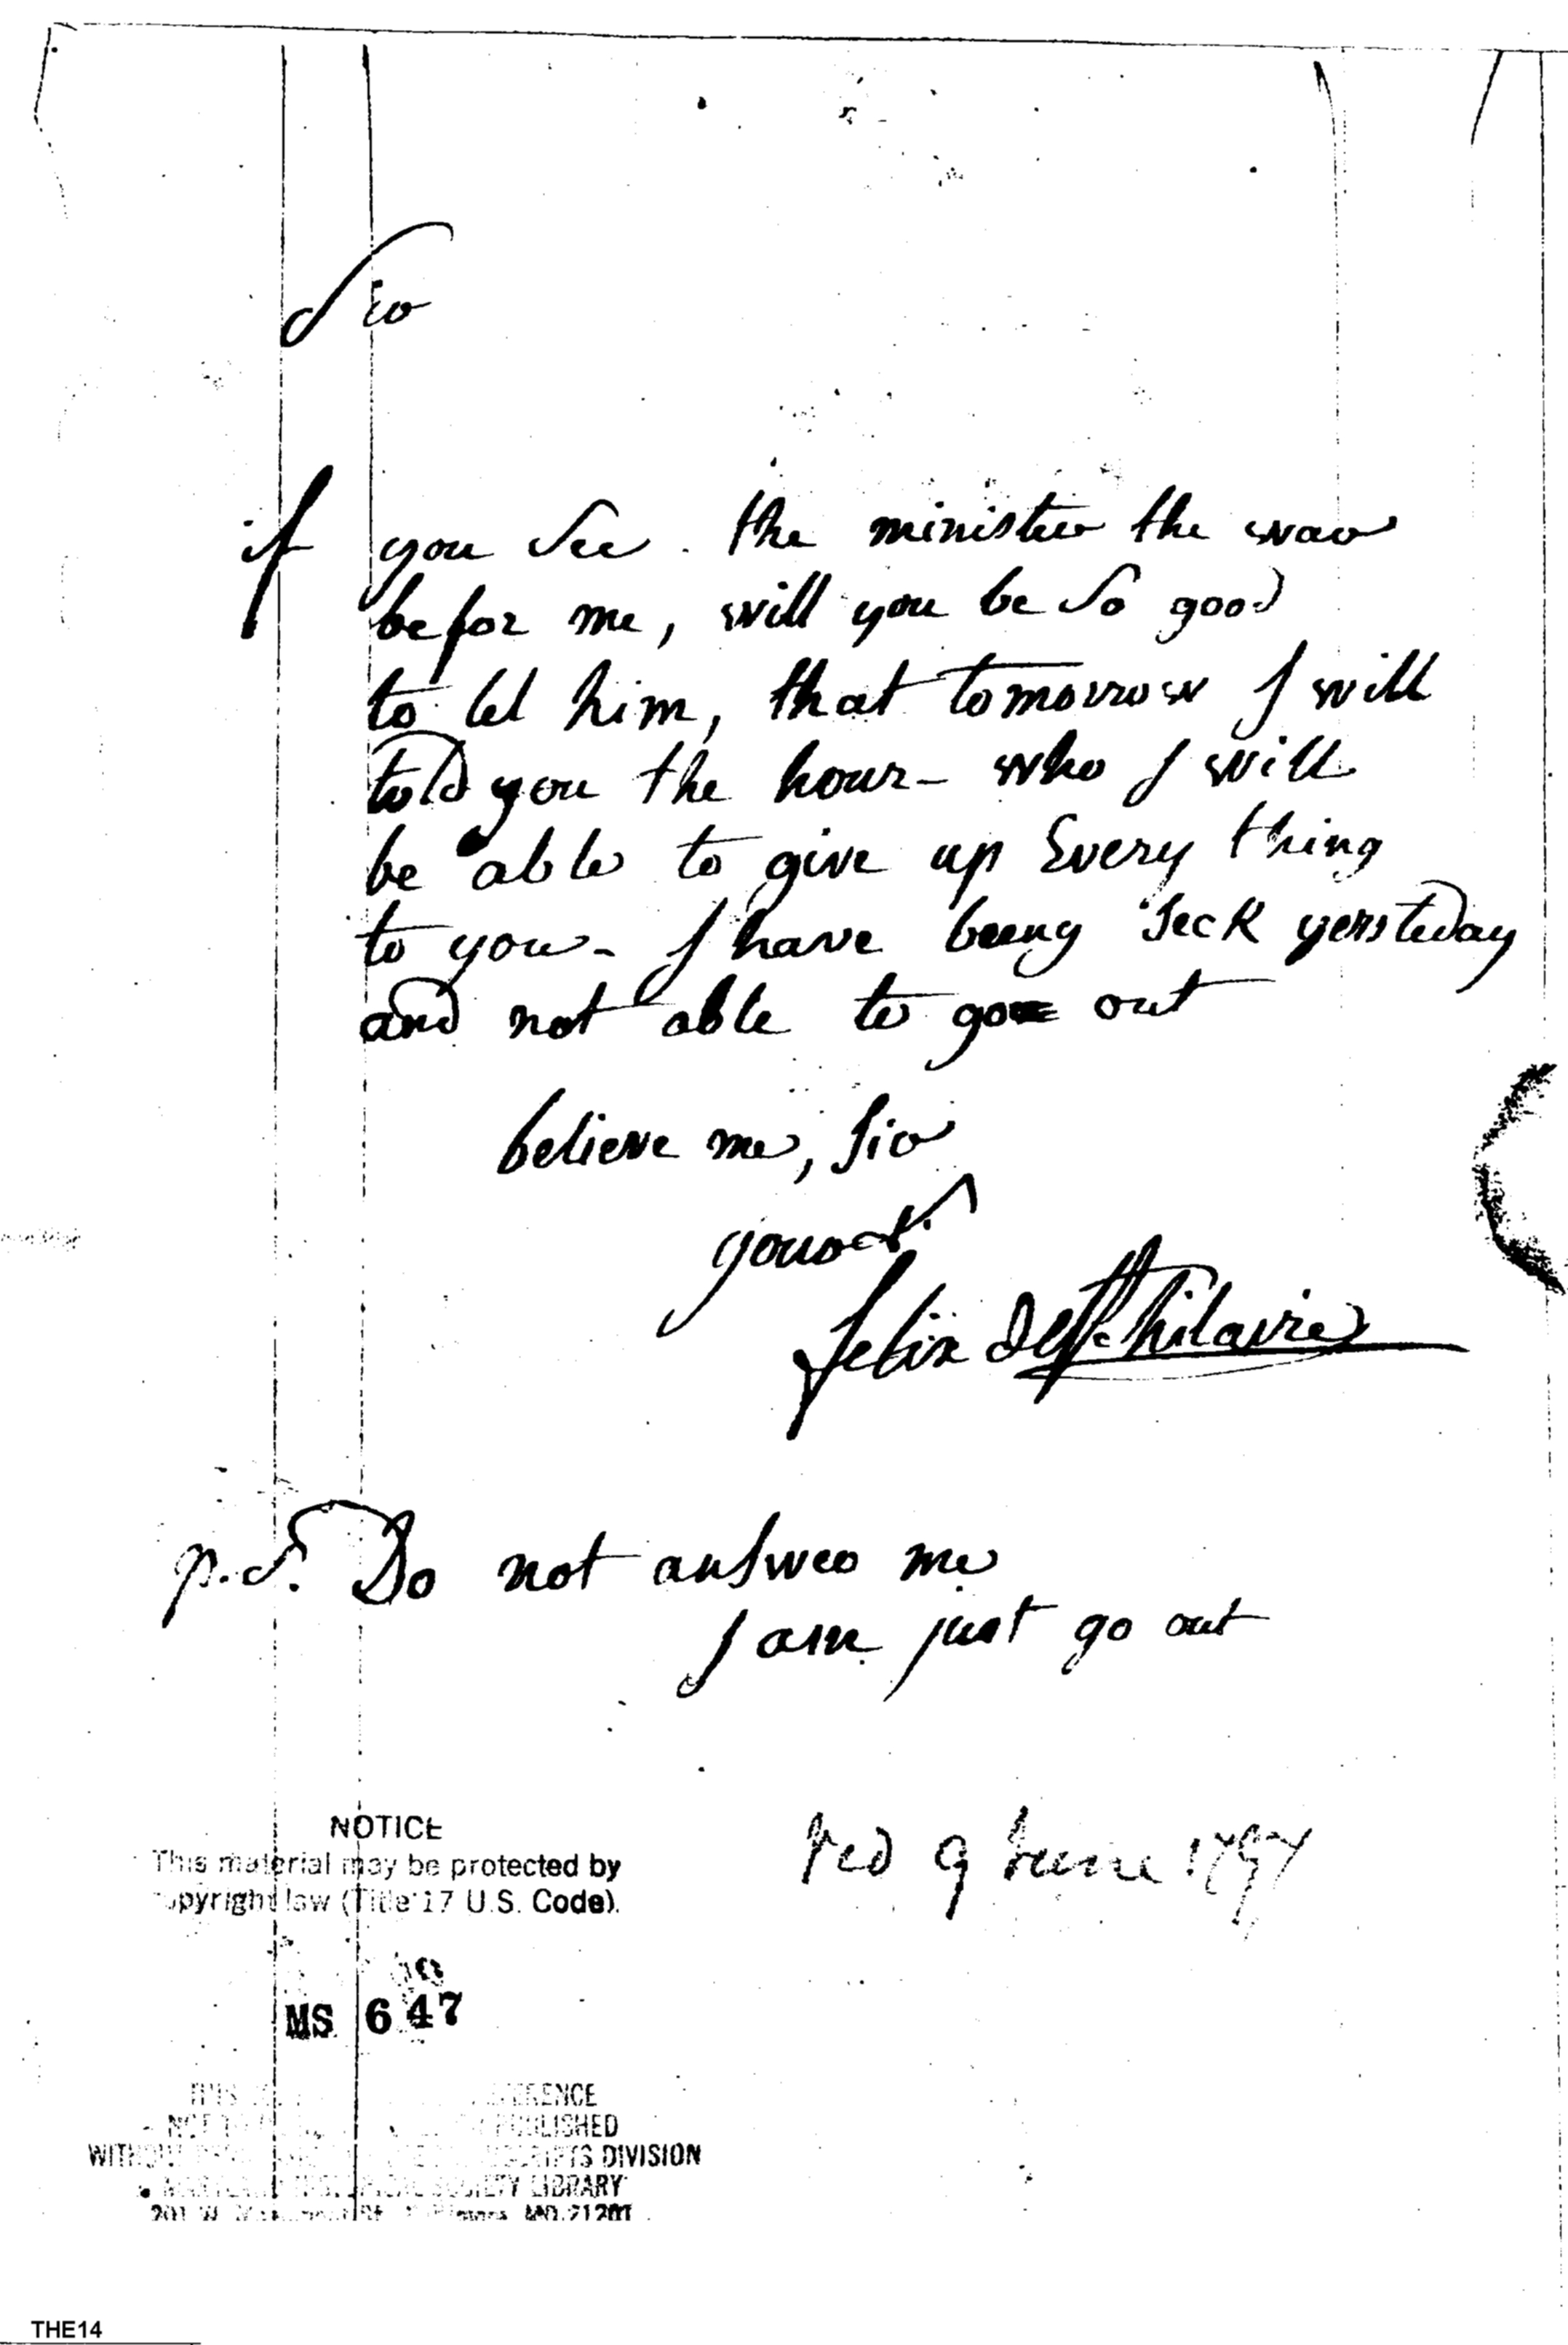 Sir
if you See. the minister the war
befor me, will you be So good
to let him, that tomorrow I will
told you the hour - who I will
be able to give up Every thing
to you - I have being Seck yersteday
and not able to go out
believe me, Sir
your
felix de St. hilaire
p.S. Do not answer me
I am just go out
NOTICE
This material may be protected by
copyright law (Title 17 U.S. Code).
red 9 June 1797
MS 647
THIS REFERENCE
NOT TO PUBLISHED
WITHOUT MANUSCRIPTS DIVISION
MARYLAND HISTORICAL SOCIETY LIBRARY
201 W. Monument St. Baltimore MD. 21201
THE14